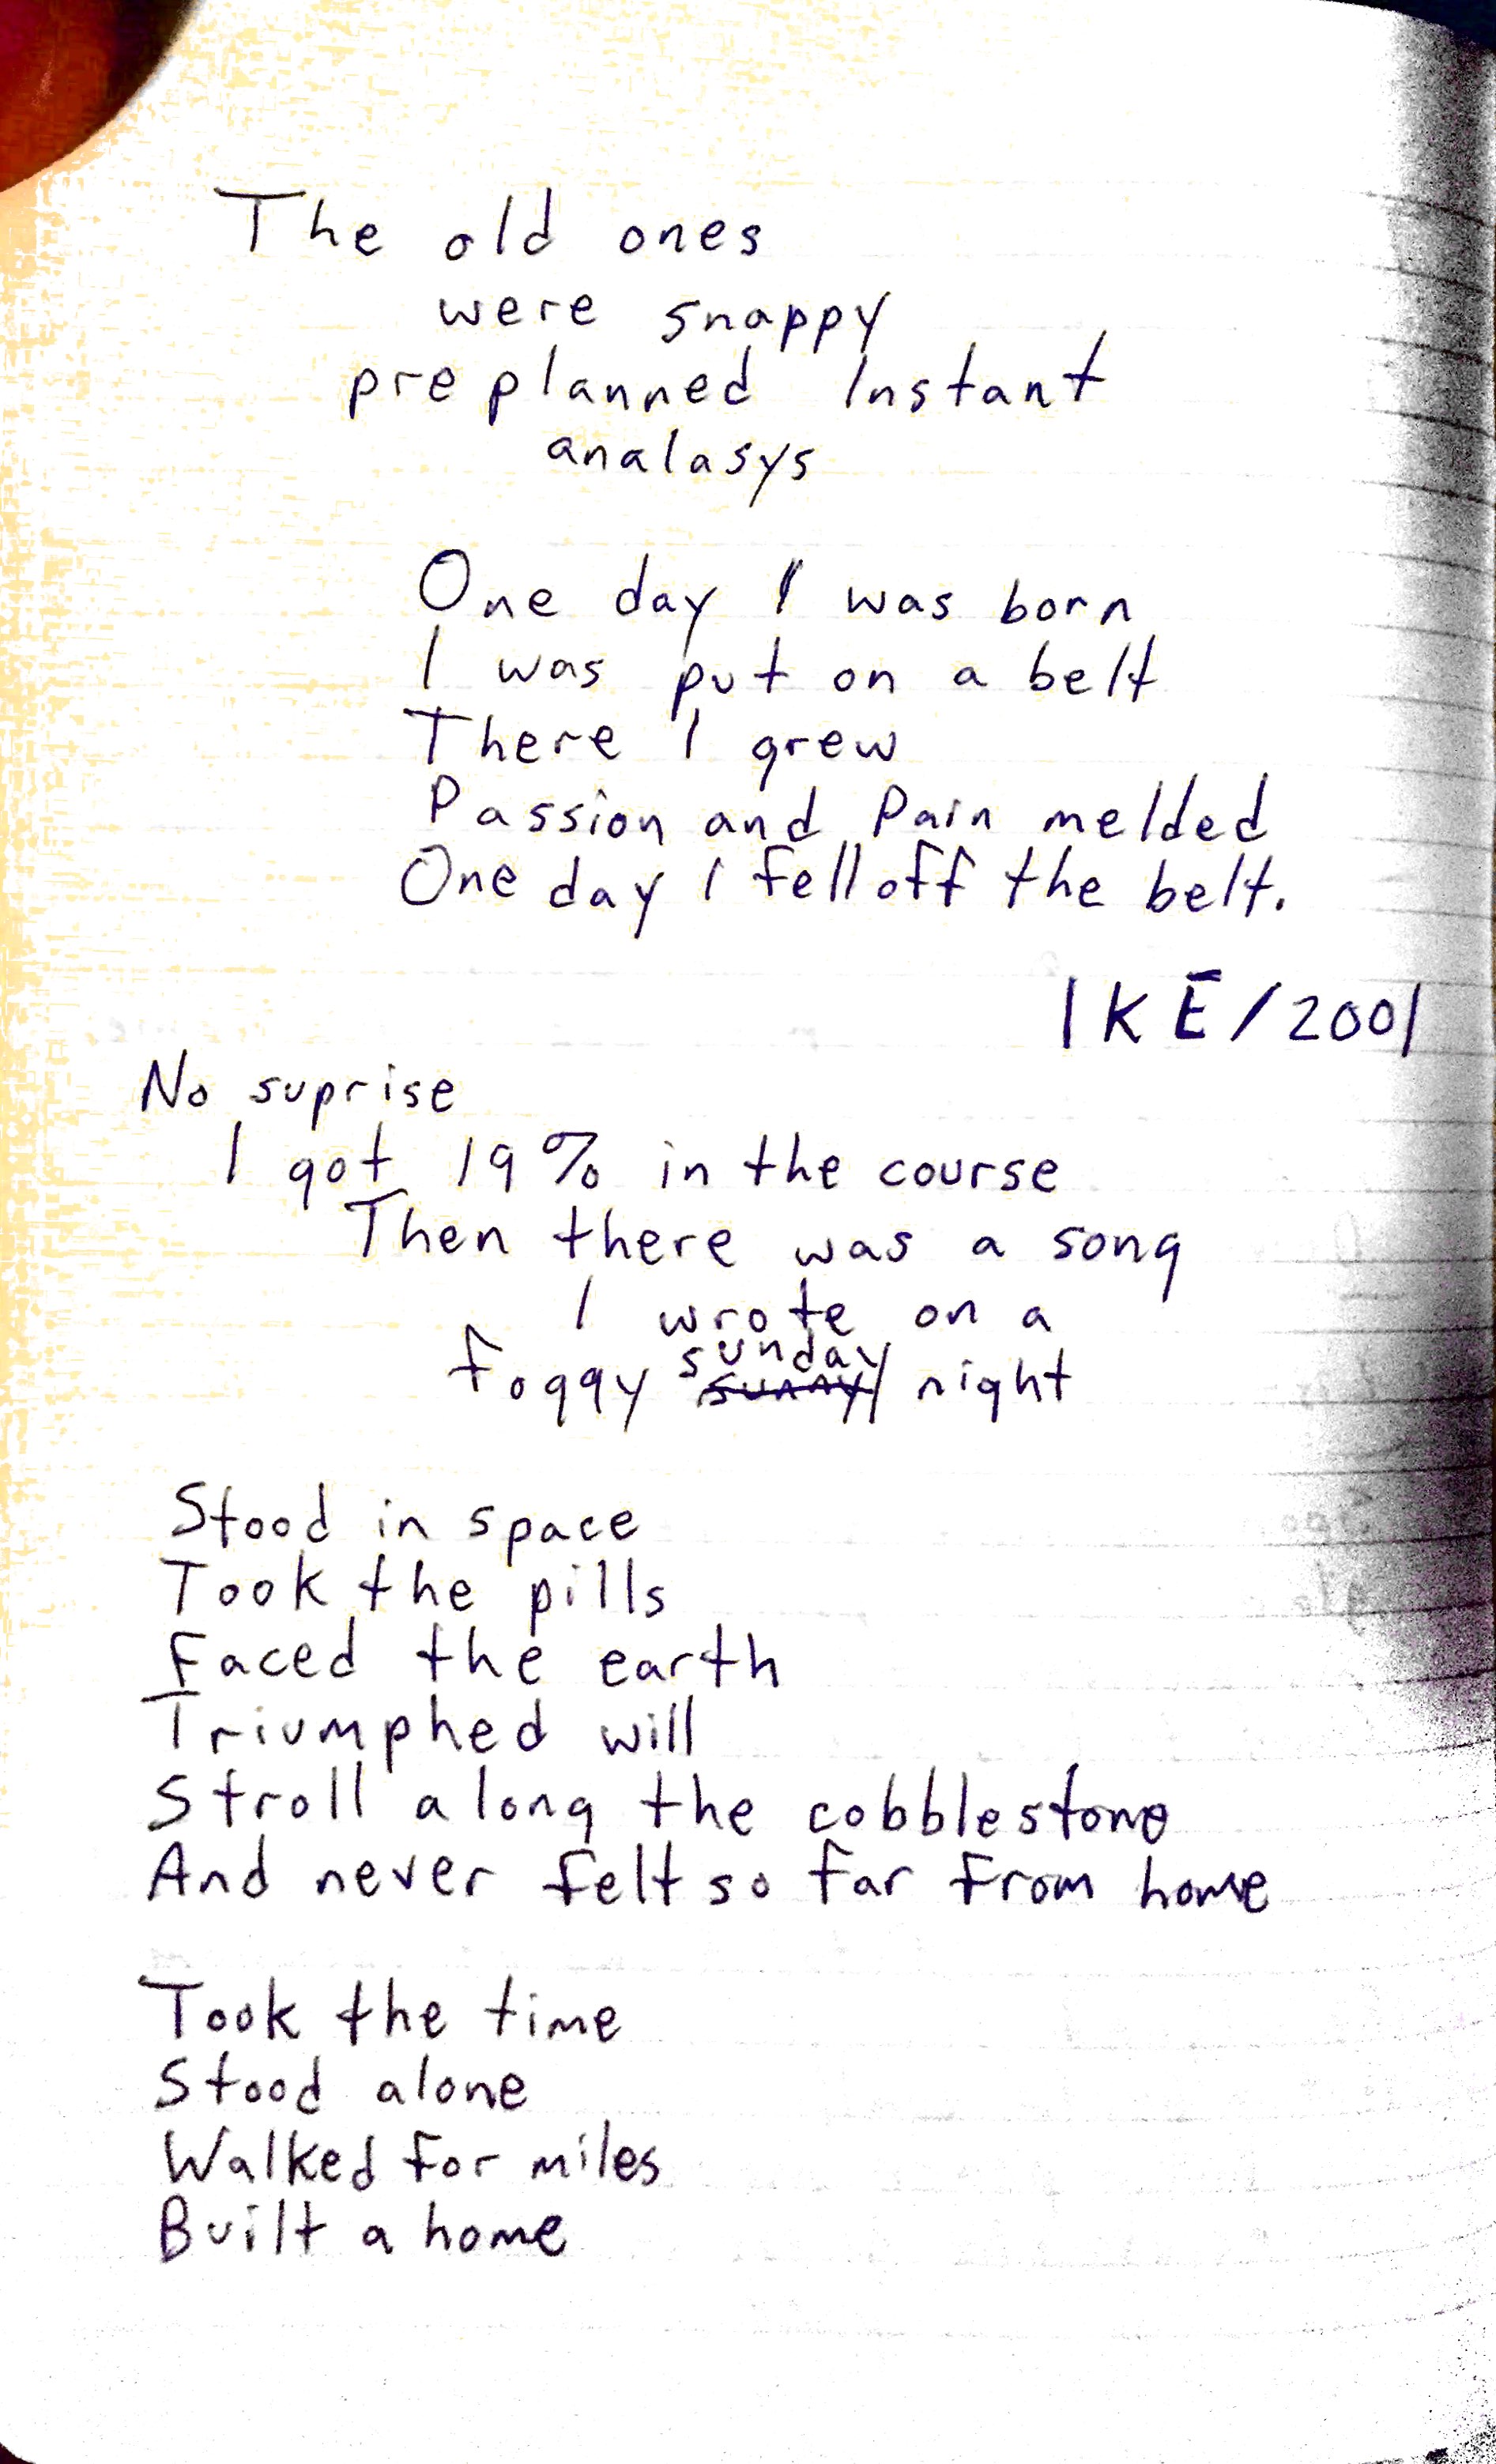 The old ones
were snappy
preplanned Instant
analasys
One day I was born
I was put on a belt
There I grew
Passion and Pain melded
One day I fell off the belt.
IKE/2001
No suprise
I got 19% in the course
Then there was a song
I wrote on a
sunday
foggy sunny night
Stood in space
Took the pills
Faced the earth
Triumphed will
Stroll along the cobblestone
And never felt so far from home
Took the time
Stood alone
Walked for miles
Built a home